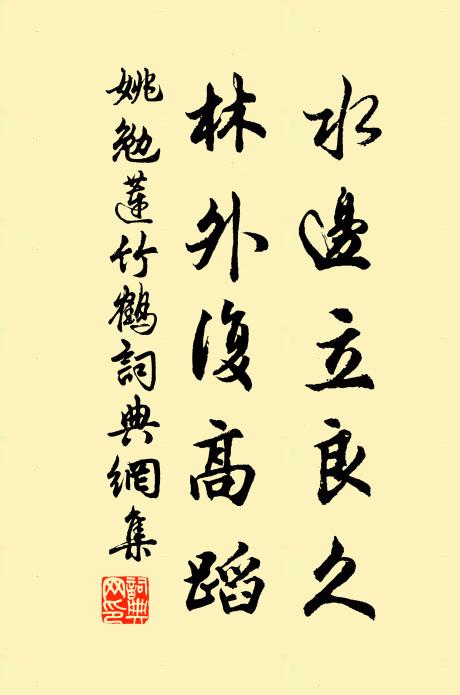 水邊立良久
林外復高蹈
姚勉蓮竹鶴詞典網集
詞典网印